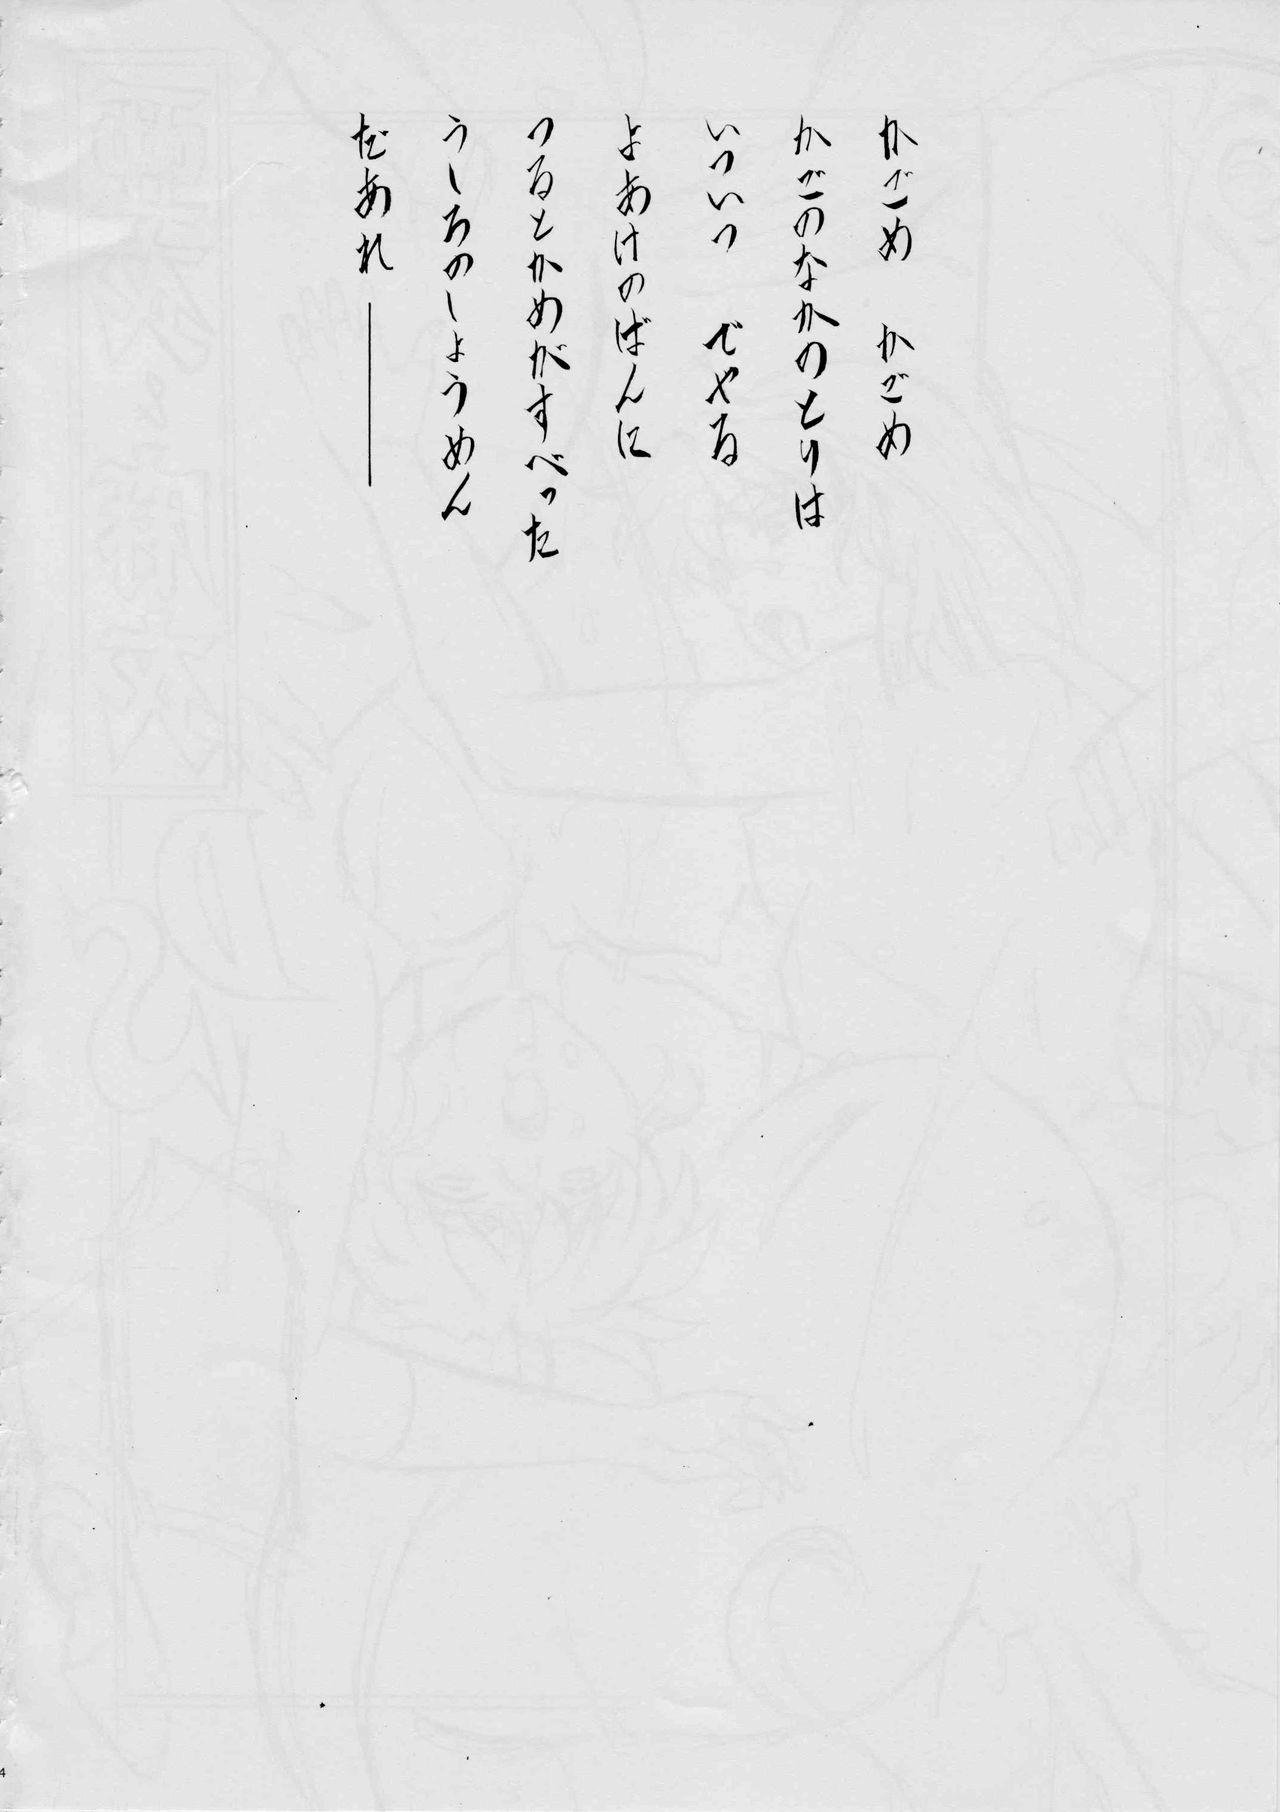 かごめ　かごめ
かごのなかのとりは
いついつ　でやる
よあけのばんに
つるとかめがすべった
うしろのしょうめん
だあれ――
4